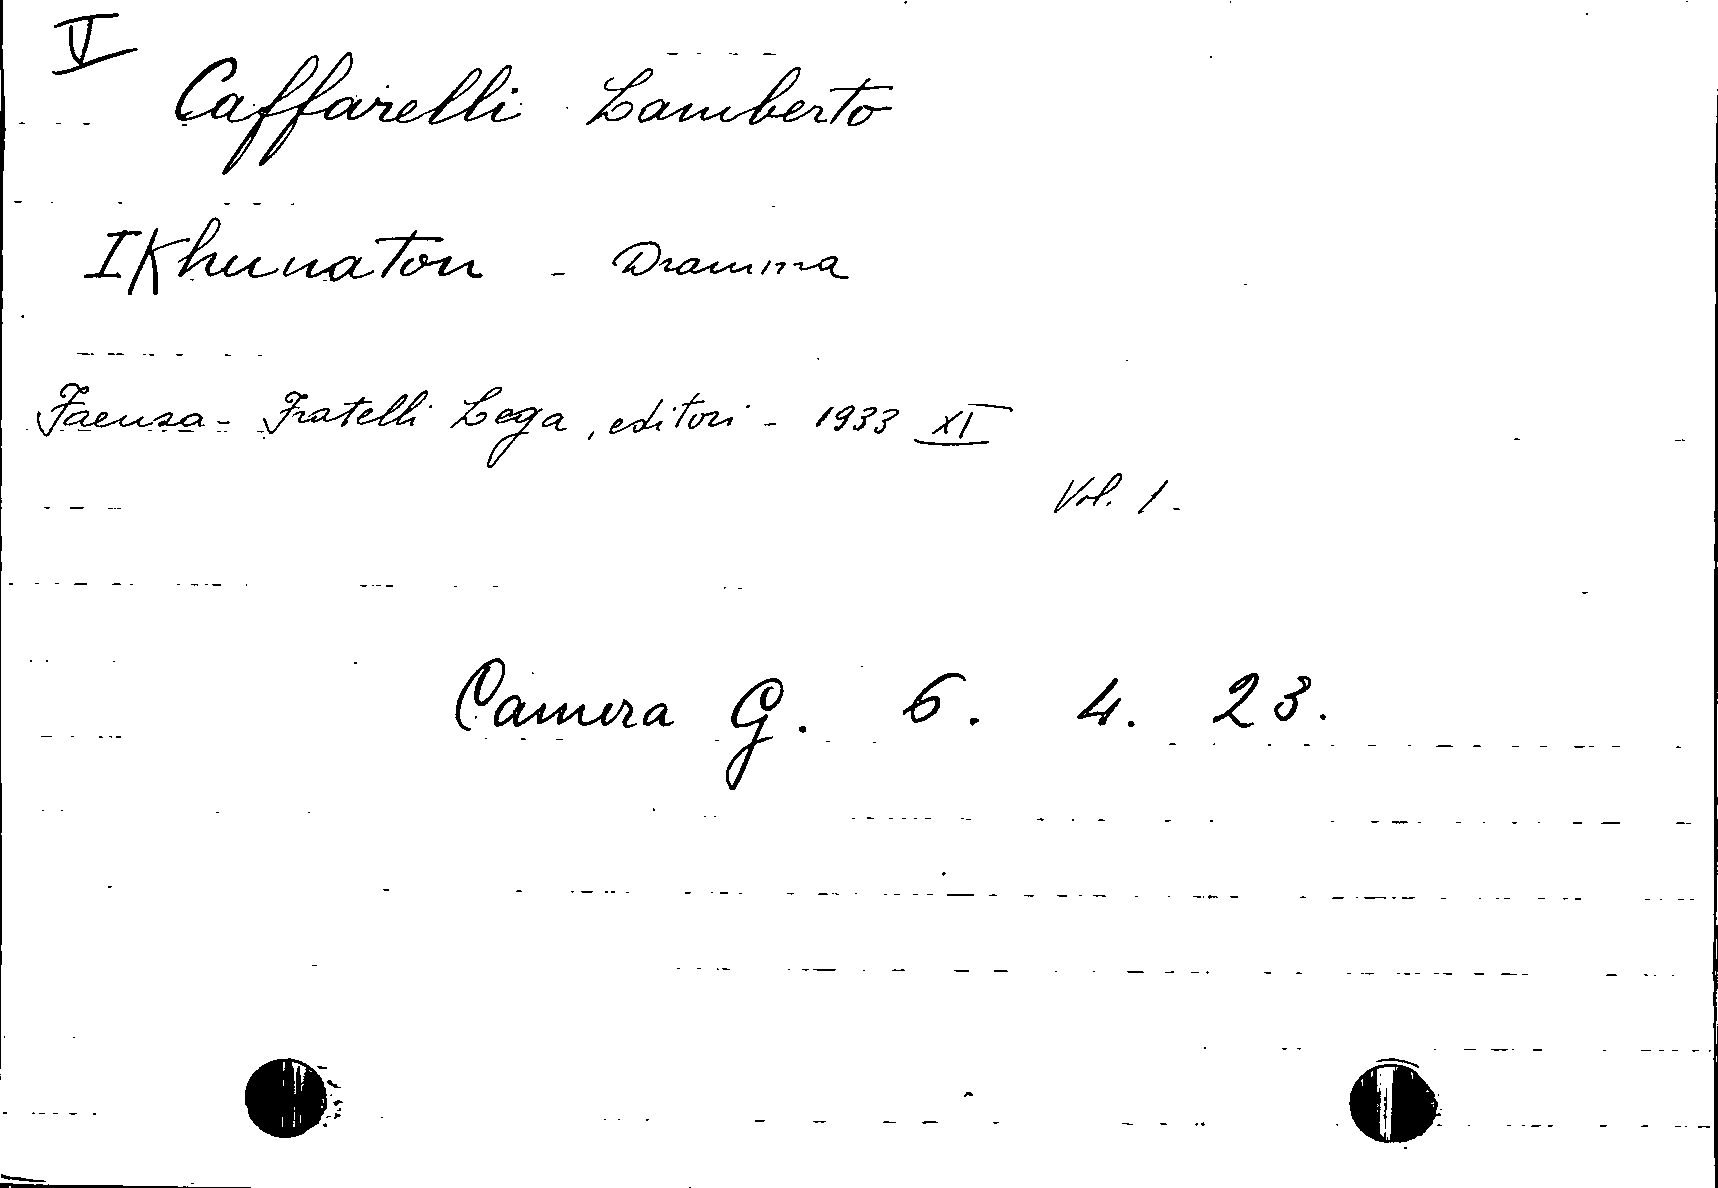 V
Caffarelli Lamberto
IKhunaton - Dramma
Faenza - Fratelli Lega, editori - 1933 XI
Vol. 1.
Camera G. 6. 4. 23.